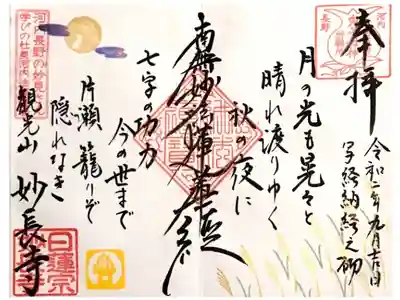 奉拝
令和二年九月吉日
写経納経之砌
月の光も晃々と
晴れ渡りゆく
秋の夜に
南無妙法蓮華経
七字の功力
今の世まで
片瀬籠りぞ
隠れなき
観光山 妙長寺
日蓮宗
河内
長野
河内長野の妙見さん